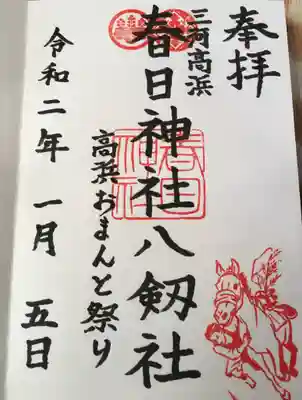 奉拝
三河高浜
春日神社八剱社
高浜おまんと祭り
令和二年一月五日